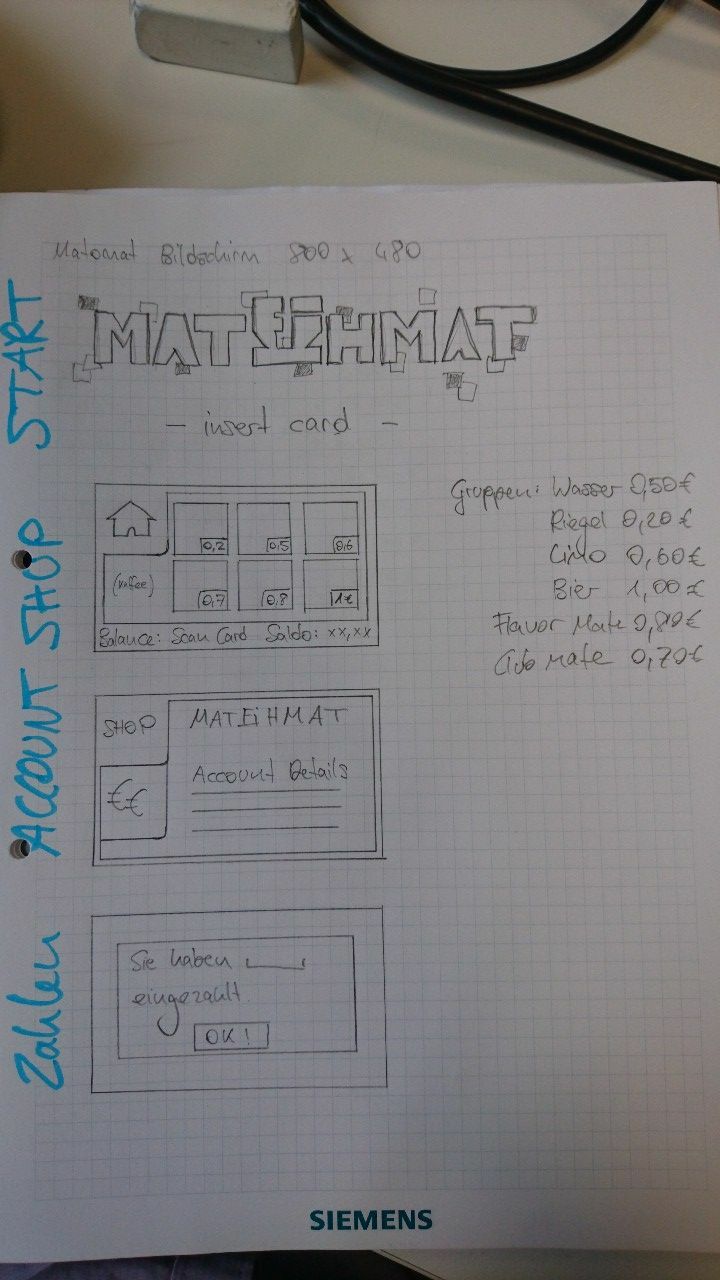 Matomat Bildschirm 800 x 480
START
MATEiHMAT
- insert card -
SHOP
0,2 0,5 0,6
(Kaffee)
0,7 0,8 1€
Balance: Scan Card Saldo: xx,xx
Gruppen: Wasser 0,50€
Riegel 0,20€
0,60€
Bier 1,00€
Flavor Mate 0,80€
Club Mate 0,70€
ACCOUNT
SHOP
MATEiHMAT
€€
Account Details
Zahlen
Sie haben
eingezahlt
OK!
SIEMENS